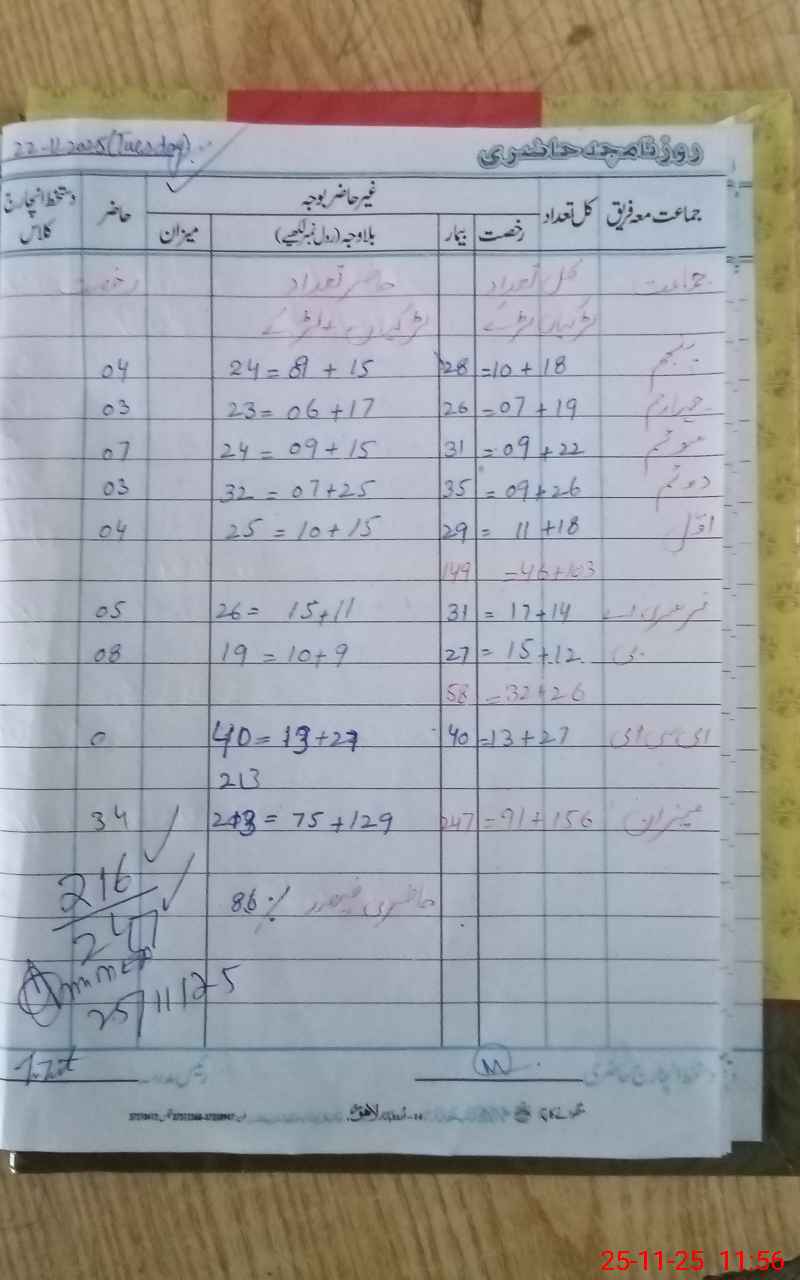 22-11-2025 (Tuesday) روزنامچہ حاضری
جماعت معہ فریق کل تعداد غیر حاضر بوجہ حاضر دستخط انچارج کلاس
رخصت بیمار بلاوجہ (رول نمبر لکھیے) میزان
جماعت کل تعداد حاضر تعداد رخصت
لڑکیاں لڑکے لڑکیاں + لڑکے
پنجم 28 = 10 + 18 24 = 9 + 15 04
چہارم 26 = 07 + 19 23 = 06 + 17 03
سوئم 31 = 09 + 22 24 = 09 + 15 07
دوئم 35 = 09 + 26 32 = 07 + 25 03
اوّل 29 = 11 + 18 25 = 10 + 15 04
149 = 46 + 103
نرسری اے 31 = 17 + 14 26 = 15 + 11 05
بی 27 = 15 + 12 19 = 10 + 9 08
58 = 32 + 26
ای سی ای 40 = 13 + 27 40 = 13 + 27 0
213
میزان 247 = 91 + 156 213 = 75 + 129 34
216
حاضری فیصد 86 %
247
25/11/25
دستخط انچارج حاضری رئیس مدرسہ
لاہور
25-11-25 11:56